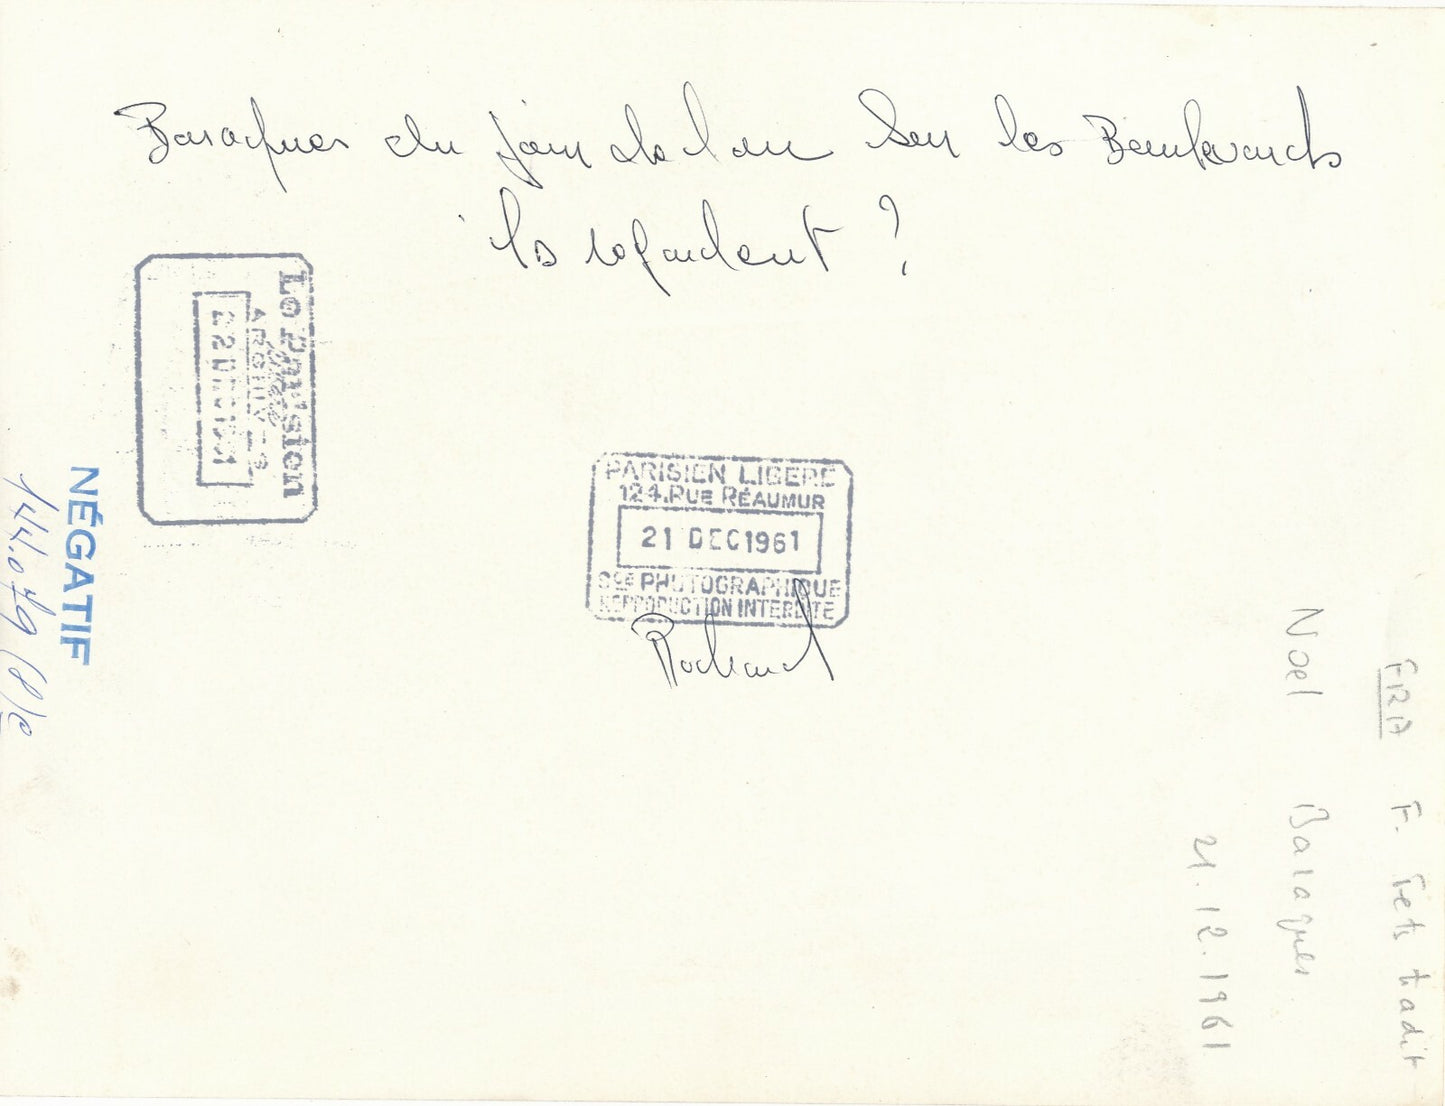 Baraques du jour de l'an sur les Boulevards
ils regardent ?
Le Parisien
libéré
ARCHIVES
22 DEC 1961
NÉGATIF
PARISIEN LIBERE
124, RUE RÉAUMUR
21 DEC 1961
SCE PHOTOGRAPHIQUE
REPRODUCTION INTERDITE
FRA F. Fets tradit
Noel Baraques
21.12.1961